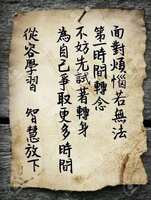 面對煩惱若無法
第一時間轉念
不妨先試著轉身
為自己爭取更多時間
從容學習　智慧放下